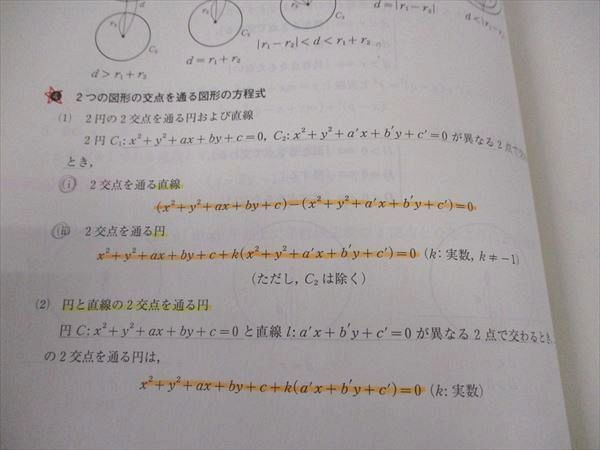 r₂ d
C₂
d>r₁+r₂
d=r₁+r₂
C₂
|r₁-r₂|<d<r₁+r₂
d=|r₁-r₂|
d<|r₁-
4 2つの図形の交点を通る図形の方程式
(1) 2円の2交点を通る円および直線
2円 C₁: x²+y²+ax+by+c=0, C₂: x²+y²+a′x+b′y+c′=0 が異なる2点で
とき,
(i) 2交点を通る直線
(x²+y²+ax+by+c)-(x²+y²+a′x+b′y+c′)=0
(ii) 2交点を通る円
x²+y²+ax+by+c+k(x²+y²+a′x+b′y+c′)=0 (k: 実数, k≠-1)
(ただし, C₂ は除く)
(2) 円と直線の2交点を通る円
円 C: x²+y²+ax+by+c=0 と直線 l: a′x+b′y+c′=0 が異なる2点で交わるとき,
の2交点を通る円は,
x²+y²+ax+by+c+k(a′x+b′y+c′)=0 (k: 実数)